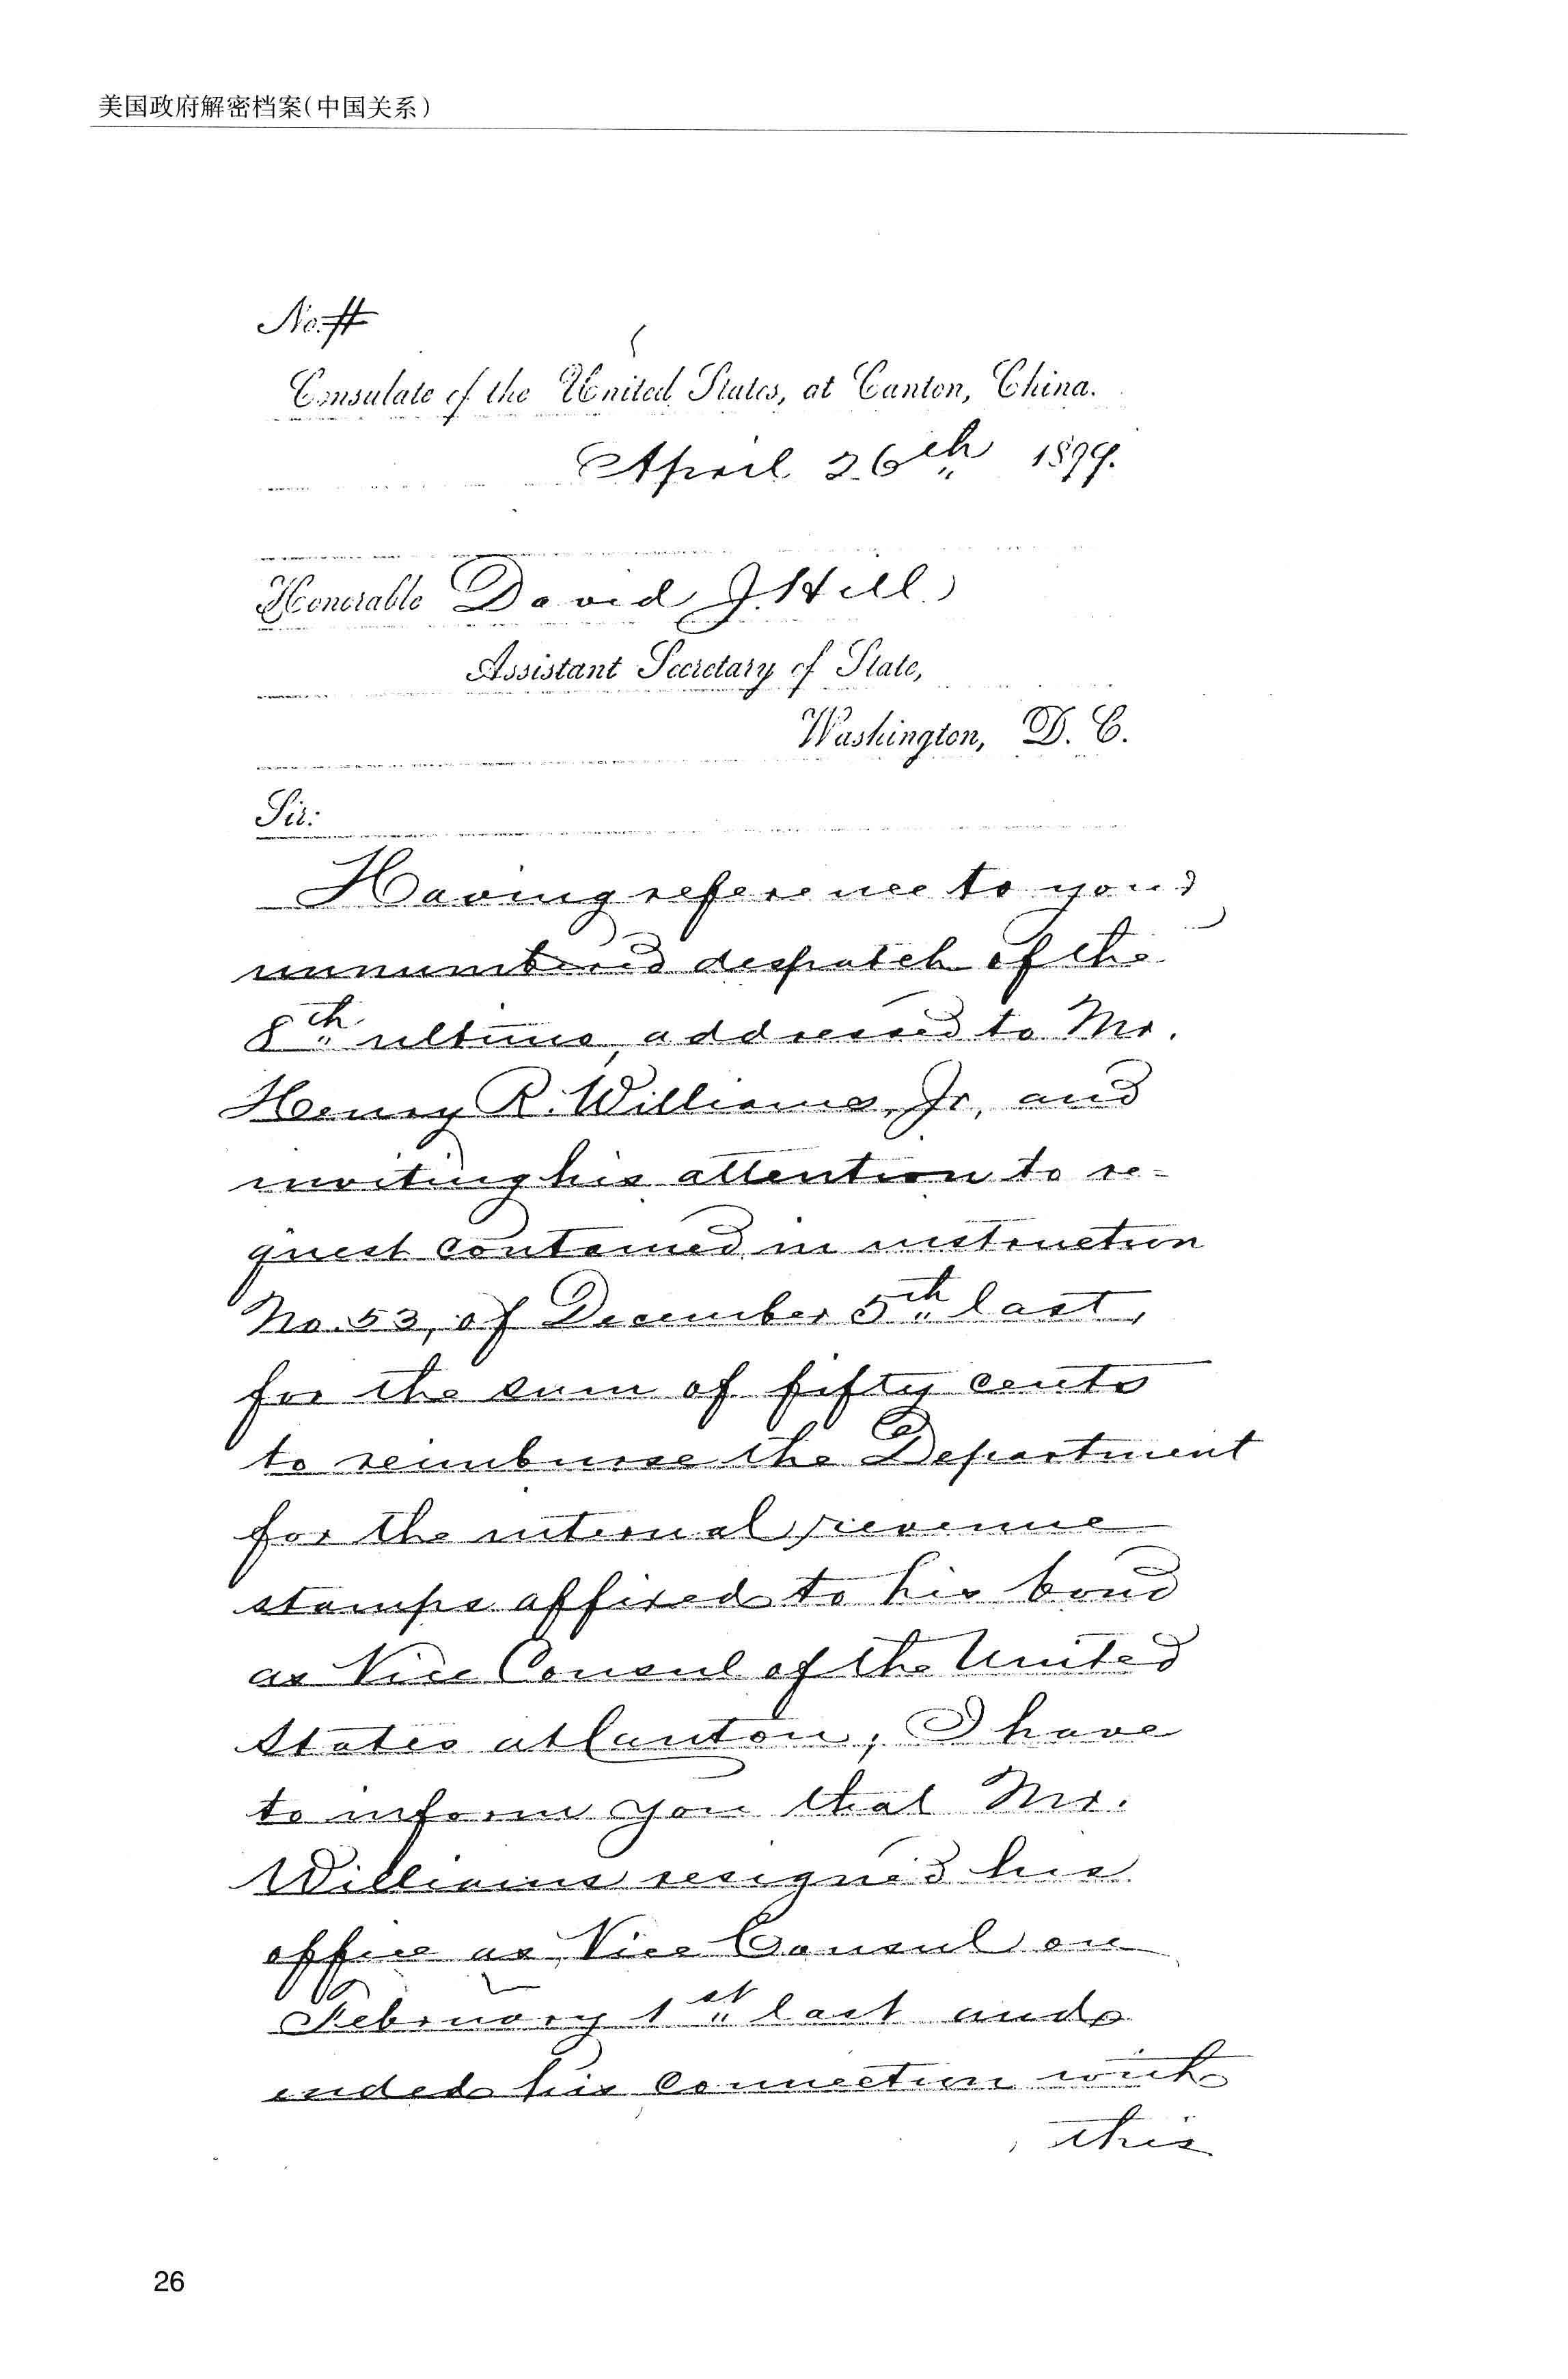 美国政府解密档案(中国关系)
No. #
Consulate of the United States, at Canton, China.
April 26th 1899.
Honorable David J. Hill,
Assistant Secretary of State,
Washington, D. C.
Sir:
Having reference to your
unnumbered despatch of the
8th ultimo, addressed to Mr.
Henry R. Williams, Jr, and
inviting his attention to re-
quest contained in instruction
No. 53, of December 5th last,
for the sum of fifty cents
to reimburse the Department
for the internal revenue
stamps affixed to his bond
as Vice Consul of the United
States at Canton, I have
to inform you that Mr.
Williams resigned his
office as Vice Consul on
February 1st last and
ended his connection with
this
26